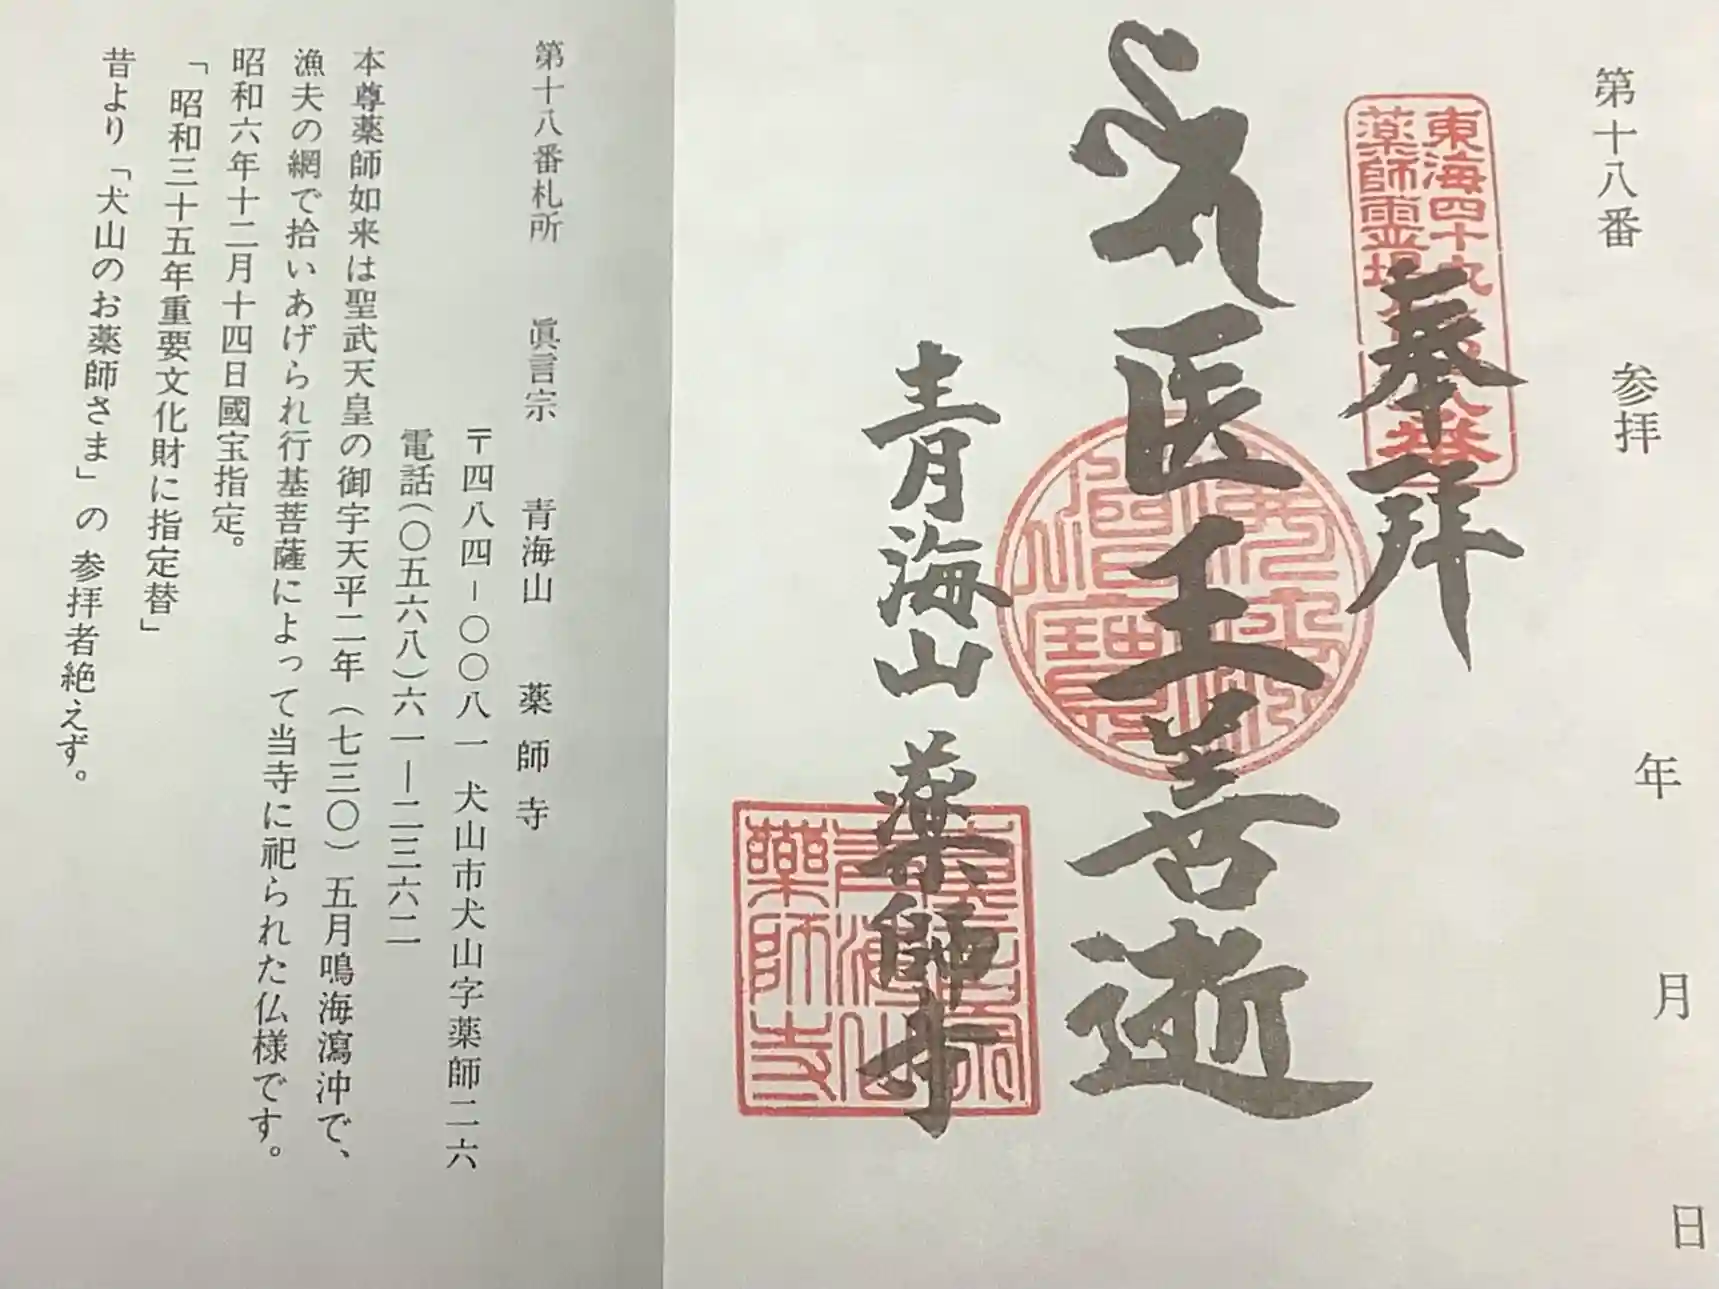 第十八番 参拝 年 月 日
東海四十九
薬師霊場
奉拝
医王善逝
青海山 薬師寺
藥師寺
第十八番札所 眞言宗 青海山 薬師寺
〒四八四－〇〇八一 犬山市犬山字薬師二六
電話（〇五六八）六一－二三六二
本尊薬師如来は聖武天皇の御宇天平二年（七三〇）五月鳴海瀉沖で、
漁夫の網で拾いあげられ行基菩薩によって当寺に祀られた仏様です。
昭和六年十二月十四日國宝指定。
「昭和三十五年重要文化財に指定替」
昔より「犬山のお薬師さま」の参拝者絶えず。